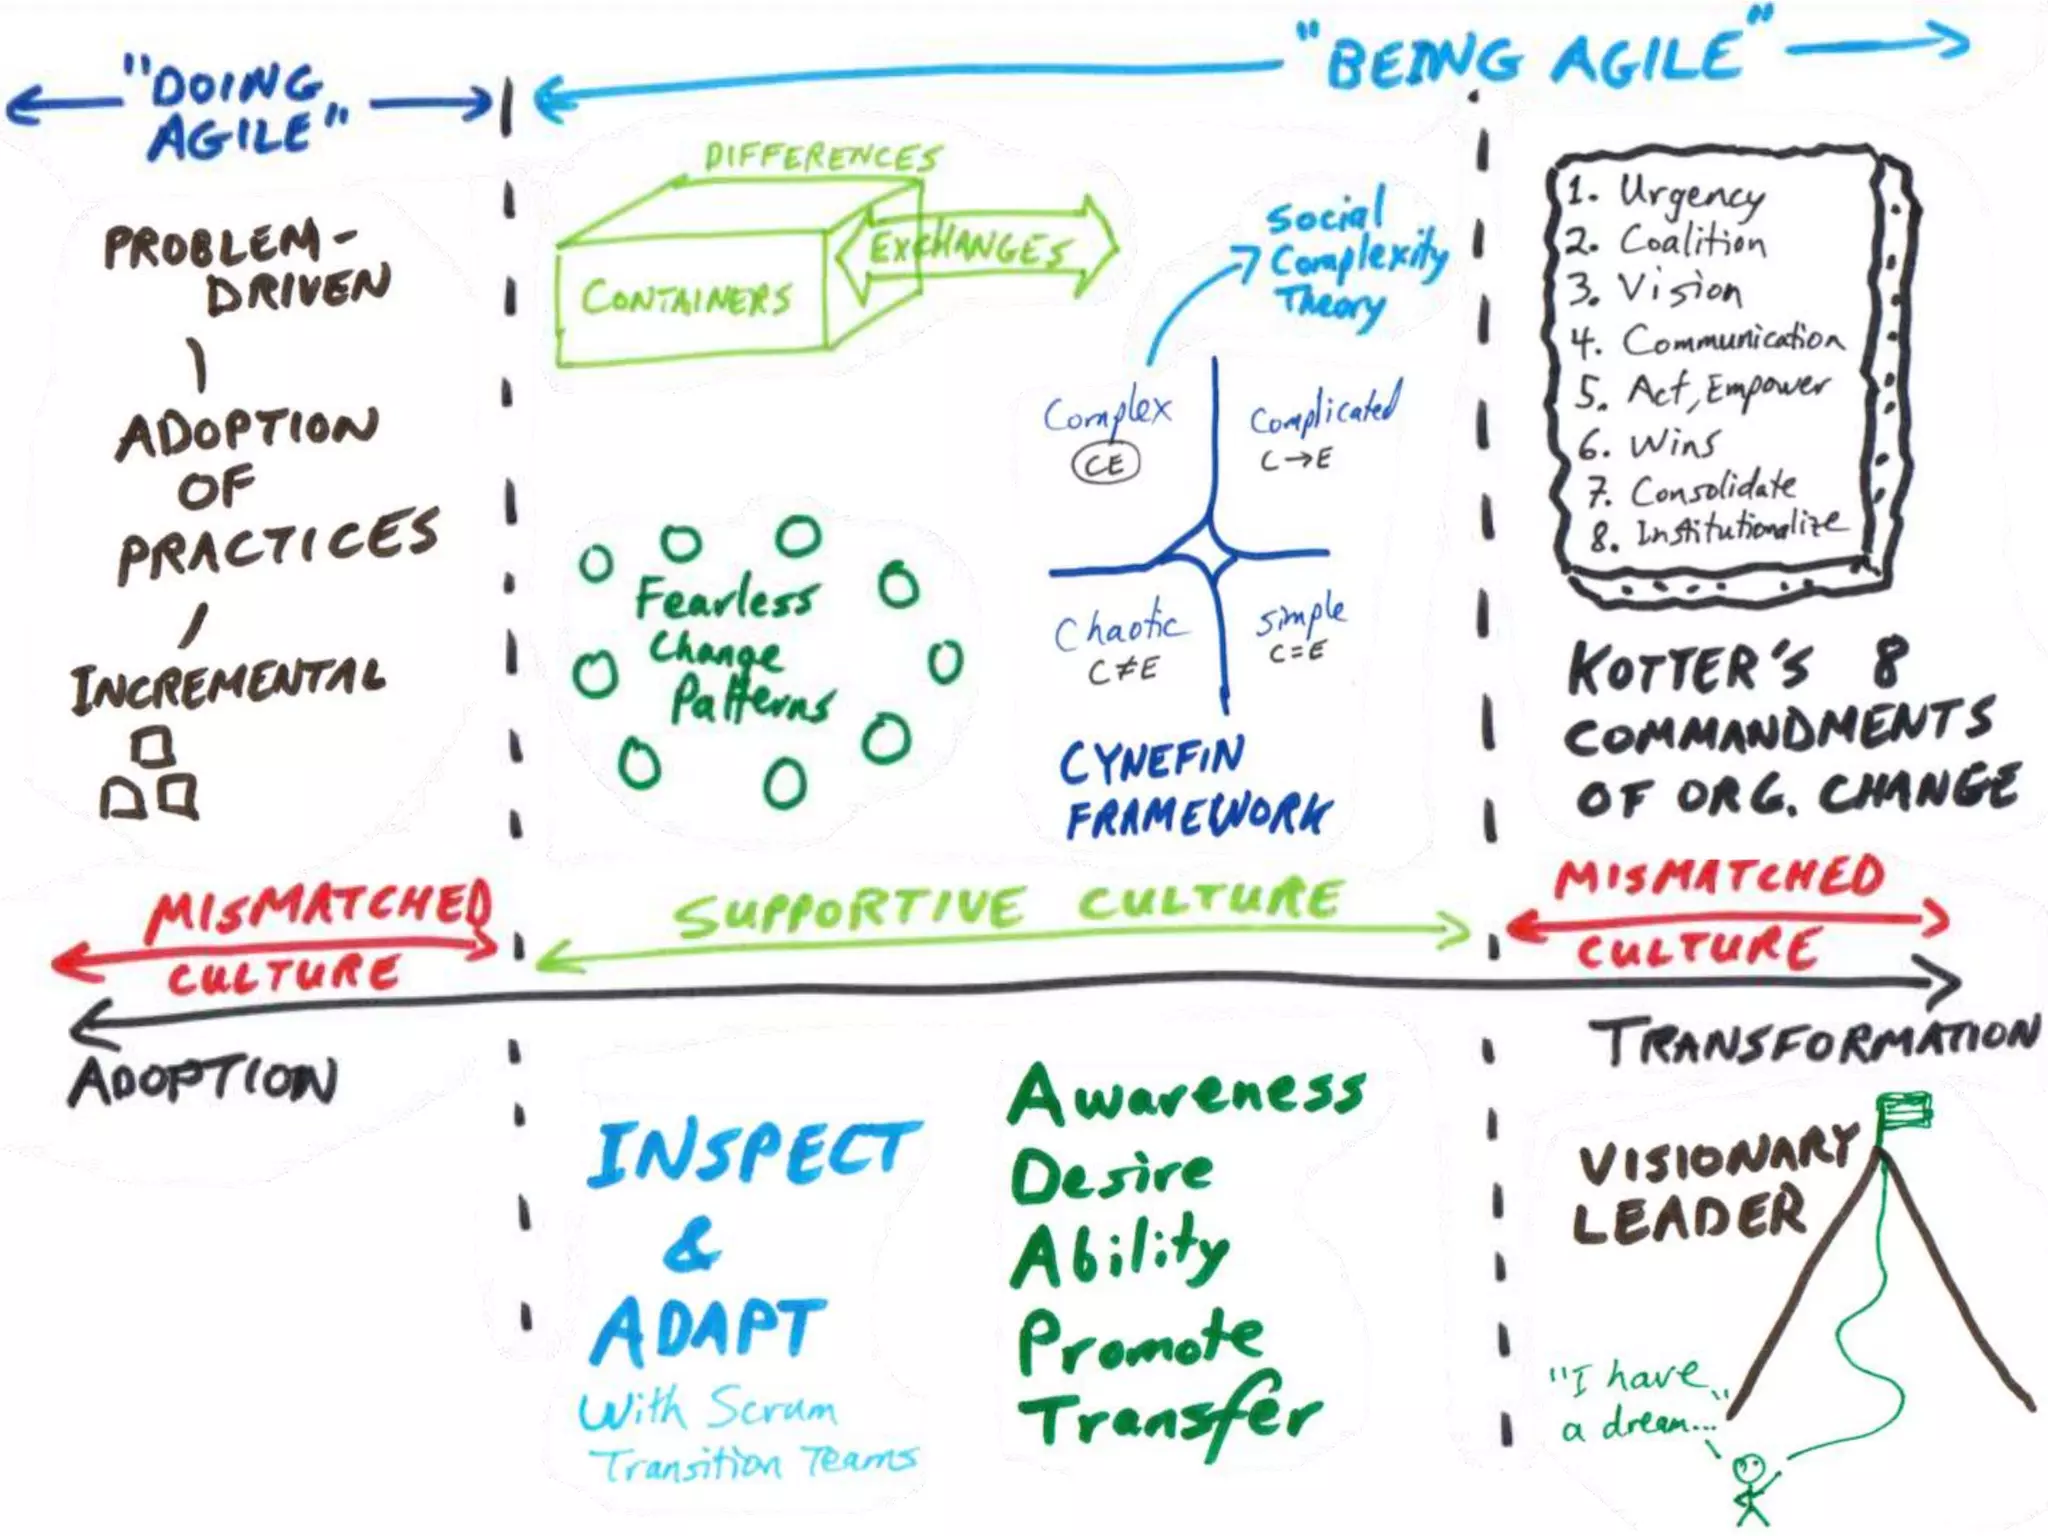 "DOING
AGILE"
"BEING AGILE"
PROBLEM-
DRIVEN
ADOPTION
OF
PRACTICES
INCREMENTAL
DIFFERENCES
EXCHANGES
CONTAINERS
Social
Complexity
Theory
Fearless
Change
Patterns
Complex
CE
Complicated
C→E
Chaotic
C≠E
simple
C=E
CYNEFIN
FRAMEWORK
1. Urgency
2. Coalition
3. Vision
4. Communication
5. Act, Empower
6. Wins
7. Consolidate
8. Institutionalize
KOTTER'S 8
COMMANDMENTS
OF ORG. CHANGE
MISMATCHED
CULTURE
SUPPORTIVE CULTURE
MISMATCHED
CULTURE
ADOPTION
TRANSFORMATION
INSPECT
&
ADAPT
With Scrum
Transition Teams
Awareness
Desire
Ability
Promote
Transfer
VISIONARY
LEADER
"I have
a dream..."